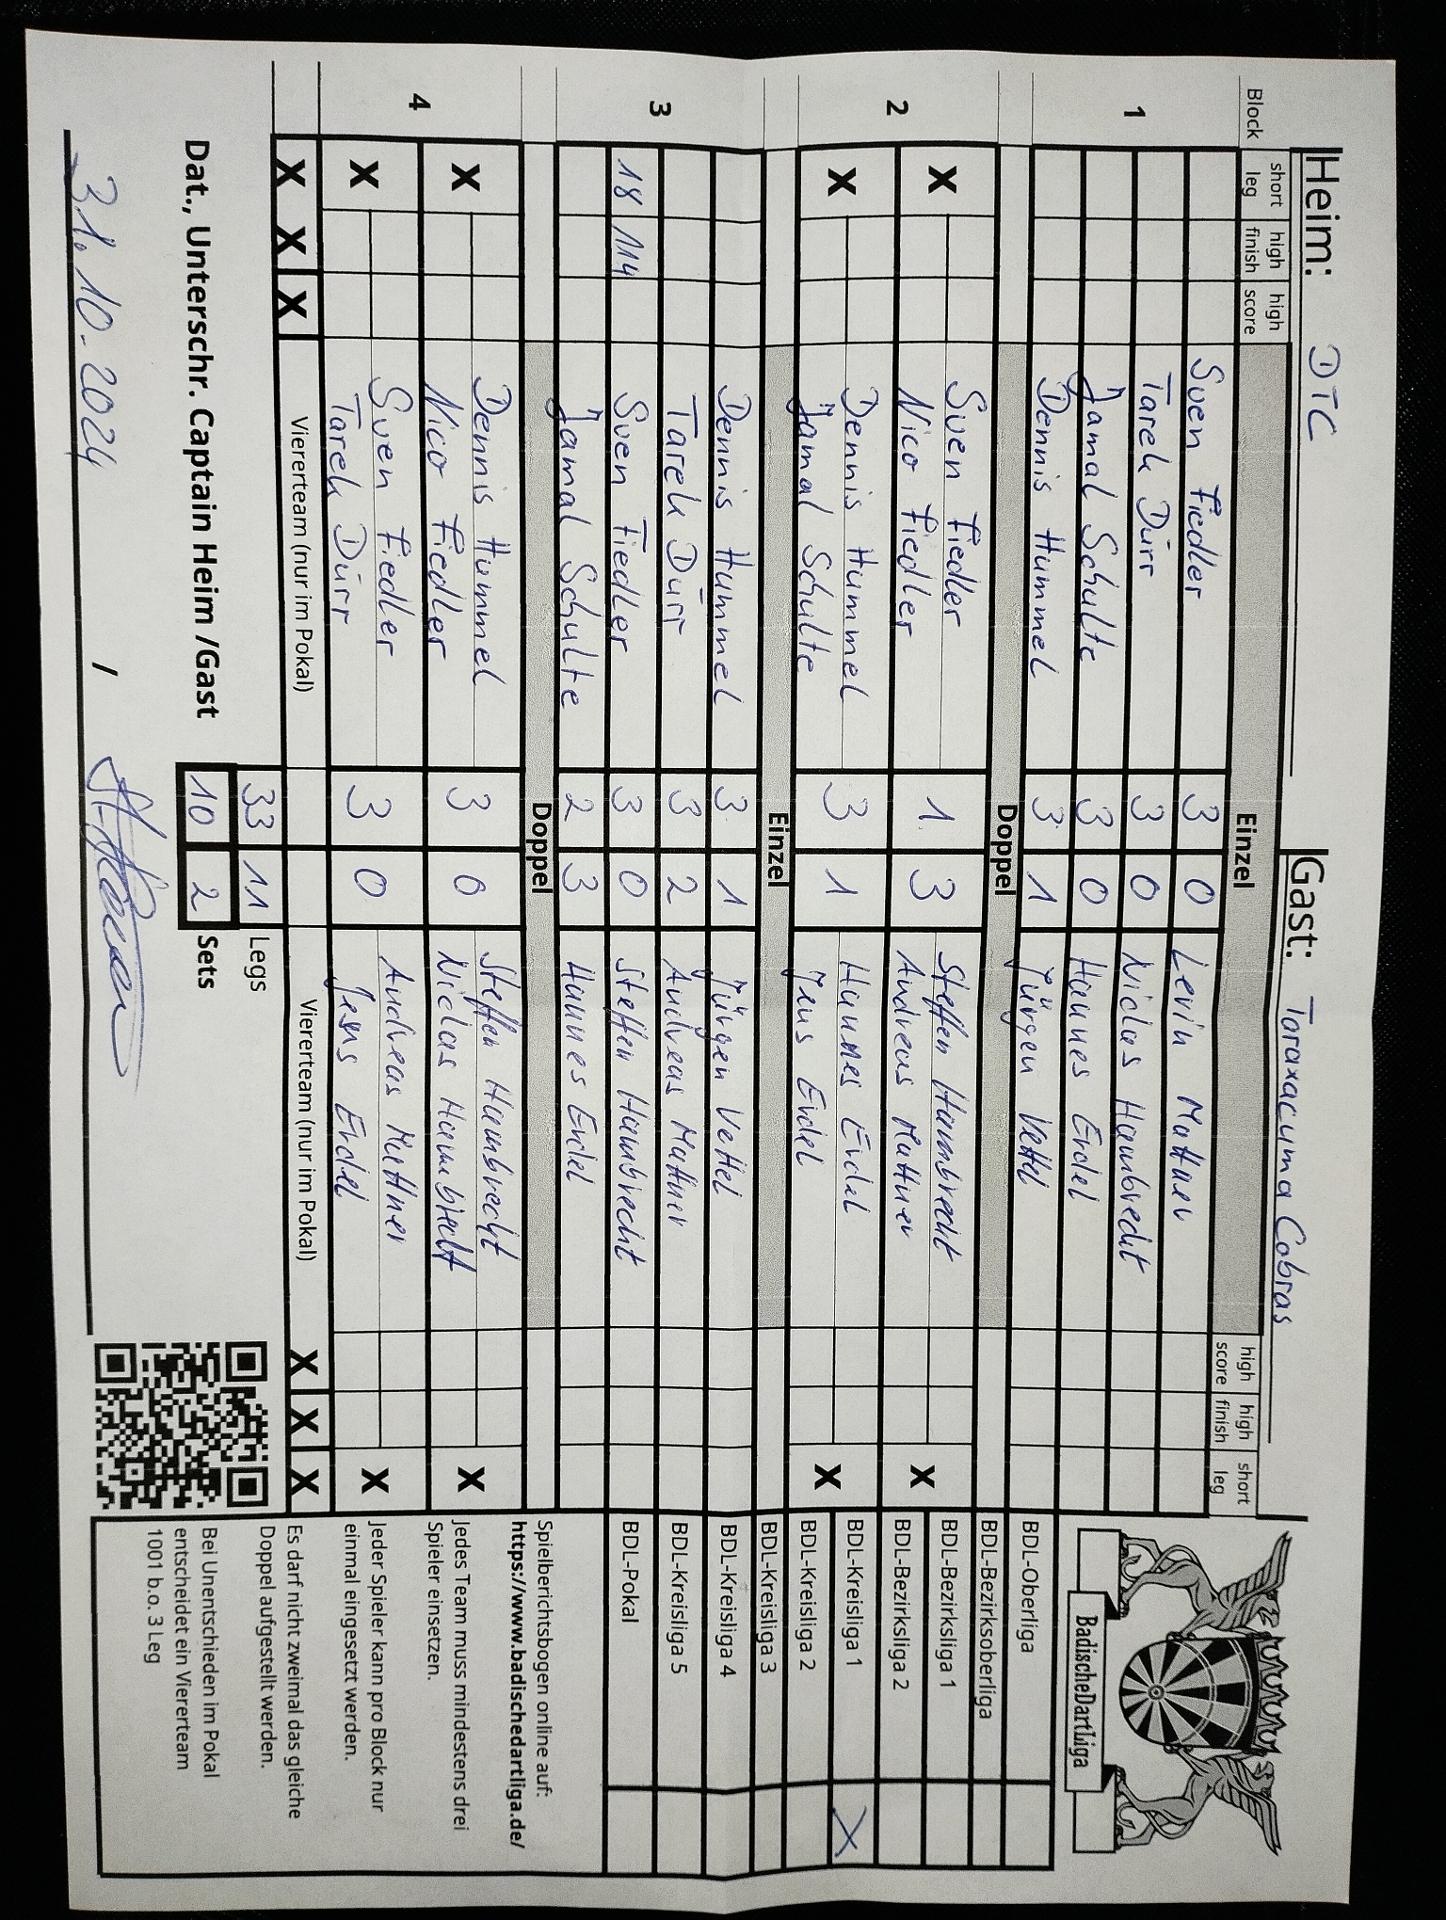 Heim: DTC Gast: Taraxacuma Cobras
Block short leg high finish high score Einzel high score high finish short leg
1
Sven Fiedler 3 0 Levin Mattner
Tarek Dürr 3 0 Niclas Hambrecht
Jamal Schulte 3 0 Hannes Erdel
Dennis Hummel 3 1 Jürgen Vettel
Doppel
2
X Sven Fiedler 1 3 Steffen Hambrecht X
Nico Fiedler Andreas Mattner
X Dennis Hummel 3 1 Hannes Erdel X
Jamal Schulte Jens Erdel
Einzel
3
Dennis Hummel 3 1 Jürgen Vettel
Tarek Dürr 3 2 Andreas Mattner
18 114 Sven Fiedler 3 0 Steffen Hambrecht
Jamal Schulte 2 3 Hannes Erdel
Doppel
4
X Dennis Hummel 3 0 Steffen Hambrecht X
Nico Fiedler Niclas Hambrecht
X Sven Fiedler 3 0 Andreas Mattner X
Tarek Dürr Jens Erdel
X X X Viererteam (nur im Pokal) Viererteam (nur im Pokal) X X X
33 11 Legs
Dat., Unterschr. Captain Heim /Gast 10 2 Sets
31.10.2024 /
BadischeDartLiga
BDL-Oberliga
BDL-Bezirksoberliga
BDL-Bezirksliga 1
BDL-Bezirksliga 2
BDL-Kreisliga 1 X
BDL-Kreisliga 2
BDL-Kreisliga 3
BDL-Kreisliga 4
BDL-Kreisliga 5
BDL-Pokal
Spielberichtsbogen online auf:
https://www.badischedartliga.de/
Jedes Team muss mindestens drei
Spieler einsetzen.
Jeder Spieler kann pro Block nur
einmal eingesetzt werden.
Es darf nicht zweimal das gleiche
Doppel aufgestellt werden.
Bei Unentschieden im Pokal
entscheidet ein Viererteam
1001 b.o. 3 Leg